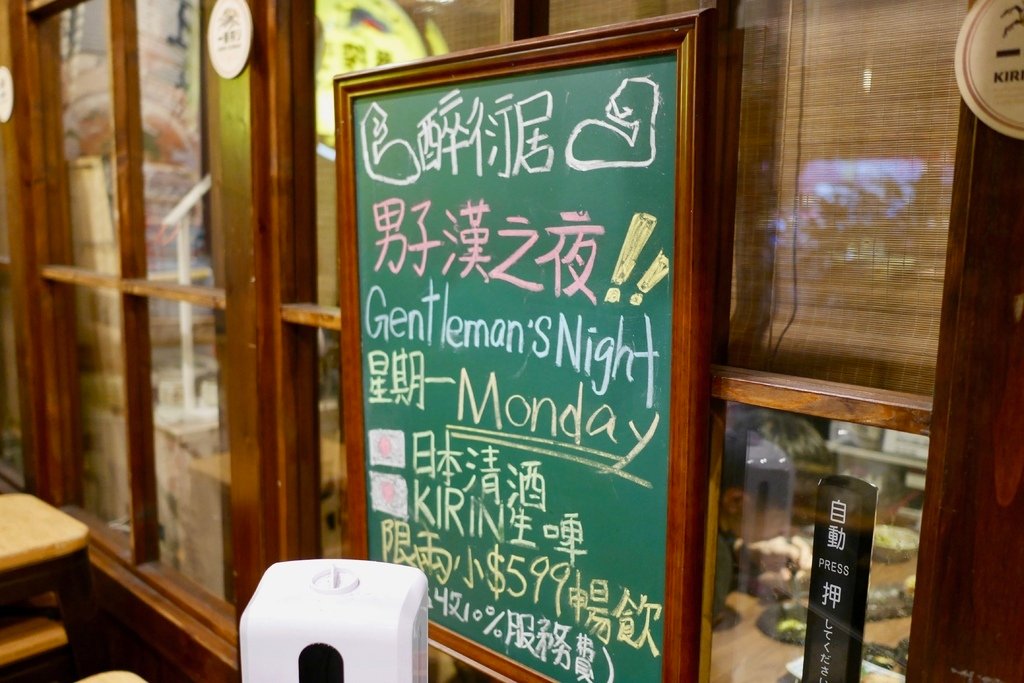 醉衍居
男子漢之夜!!
Gentleman's Night
星期一 Monday
日本清酒
KIRIN生啤
限兩小$599暢飲
收10%服務費)
自動
PRESS
押
してください